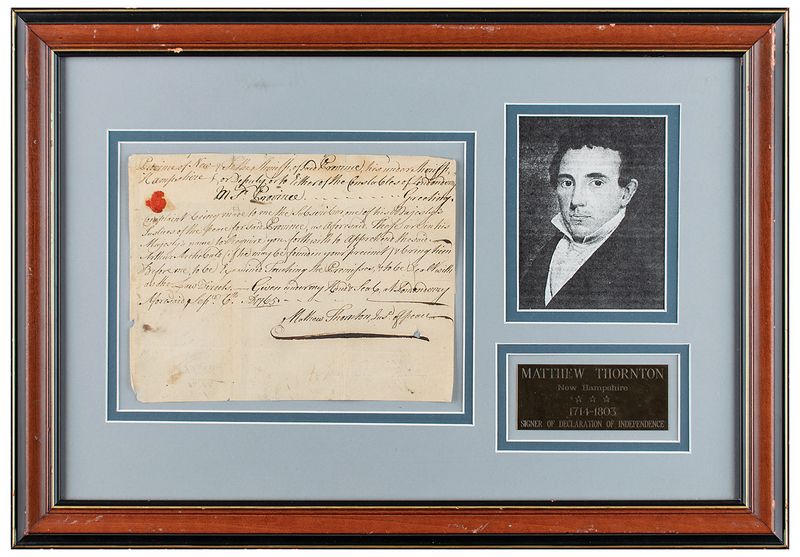 Province of New
Hampshire
To the Sheriff of said Province, his under Sheriff
or Deputy or to Either of the Constables of Londonderry
in sd. Province - - - - - - - Greeting
Complaint being made to me the Subscriber one of his Majestys
Justices of the Peace for Said Province, as aforsaid, These are in his
Majesty's name to Require you forthwith to Apprehend the said
Arthur if he may be found in your precinct & bring him
Before me, to be Examined Touching the Premisses, & to be Dealt with
as the Law Directs - Given under my Hand & Seal, at Londonderry
Aforesaid Sepr. 6th. 1765 - -
Matthew Thornton Just. of peace
MATTHEW THORNTON
New Hampshire
☆ ☆ ☆
1714-1803
SIGNER OF DECLARATION OF INDEPENDENCE